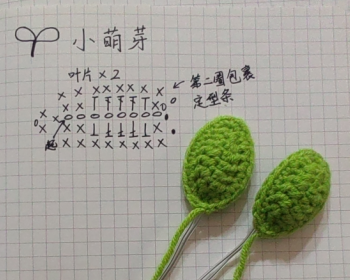 小萌芽
叶片×2
第二圈包裹
定型条
起